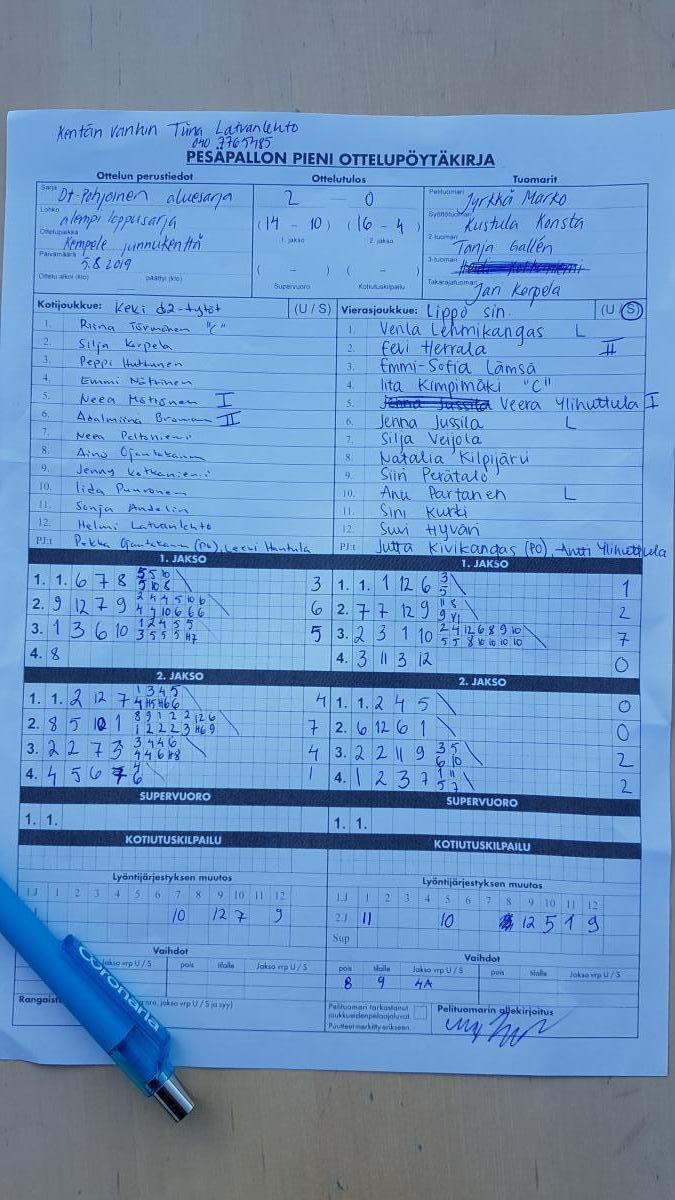 Kentän vanhin Tiina Latvanlehto
040 7765485
PESÄPALLON PIENI OTTELUPÖYTÄKIRJA
Ottelun perustiedot Ottelutulos Tuomarit
Sarja Dt-Pohjoinen aluesarja 2 0 Pelituomari Jyrkkä Marko
Lohko alempi loppusarja (14 - 10) (16 - 4) Syöttötuomari Kustula Konsta
1. jakso 2. jakso
Ottelupaikka Kempele junnukenttä 2-tuomari Tanja Gallén
Päivämäärä 5.8.2019 ( - ) ( - ) 3-tuomari
Ottelu alkoi (klo) päättyi (klo) Supervuoro Kotiutuskilpailu Takarajatuomari Jari Korpela
Kotijoukkue: Keki d2-tytöt (U / S) Vierasjoukkue: Lippo sin. (U S)
1. Riina Törmänen "C" 1. Venla Lehmikangas L
2. Silja Korpela 2. Eevi Herrala II
3. Peppi Huttunen 3. Emmi-Sofia Lämsä
4. Emmi Nättinen 4. Iita Kimpimäki "C"
5. Neea I 5. Jenna Jussila Veera Ylihuttula I
6. Adalmiina Braman II 6. Jenna Jussila L
7. Neea Peltoniemi 7. Silja Veijola
8. Aino Ojantakanen 8. Natalia Kilpijärvi
9. Jenny Kotkaniemi 9. Siiri Perätalo
10. Iida Punronen 10. Anu Partanen L
11. Sonja Andelin 11. Sini Kurki
12. Helmi Latvanlehto 12. Suvi Hyväri
PJ:t Pekka Ojantakanen (PO), Leevi Hantula PJ:t Jutta Kivikangas (PO), Antti Ylihuttula
1. JAKSO 1. JAKSO
1. 1. 6 7 8 5 5 10 3 1. 1. 1 12 6 3 1
5 10 8 5
2. 9 12 7 9 2 4 4 5 10 6 6 2. 7 7 12 9 11 8 2
4 4 10 6 6 6 9
3. 1 3 6 10 1 2 4 5 5 5 3. 2 3 1 10 2 4 12 6 8 9 10 7
3 5 5 5 H7 5 5 8 10 10 10 10
4. 8 4. 3 11 3 12 0
2. JAKSO 2. JAKSO
1. 1. 2 12 7 1 3 4 5 4 1. 1. 2 4 5 0
4 H5 H6 6
2. 8 5 10 1 8 9 1 2 2 12 6 7 2. 6 12 6 1 0
1 2 2 2 3 H6 9
3. 2 2 7 3 3 4 4 6 4 3. 2 2 11 9 3 5 2
4 4 6 H8 6 10
4. 4 5 6 7 4 1 4. 1 2 3 7 1 11 2
6 5 7
SUPERVUORO SUPERVUORO
1. 1. 1. 1.
KOTIUTUSKILPAILU KOTIUTUSKILPAILU
Lyöntijärjestyksen muutos Lyöntijärjestyksen muutos
1.J 1 2 3 4 5 6 7 8 9 10 11 12 1.J 1 2 3 4 5 6 7 8 9 10 11 12
10 12 7 9 2.J 11 10 12 5 1 9
Sup
Vaihdot Vaihdot
Jakso vrp U / S pois tilalle Jakso vrp U / S pois tilalle Jakso vrp U / S pois tilalle Jakso vrp U / S
8 9 4A
nro, jakso vrp U / S ja syy) Pelituomari tarkastanut joukkueidenpelaajaluvat. Pelituomarin allekirjoitus
Puutteet merkitty erikseen.
coronaria